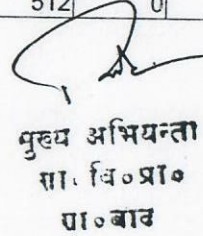 512 0
मुख्य अभियन्ता
गा. वि०प्रा०
गा०बाद